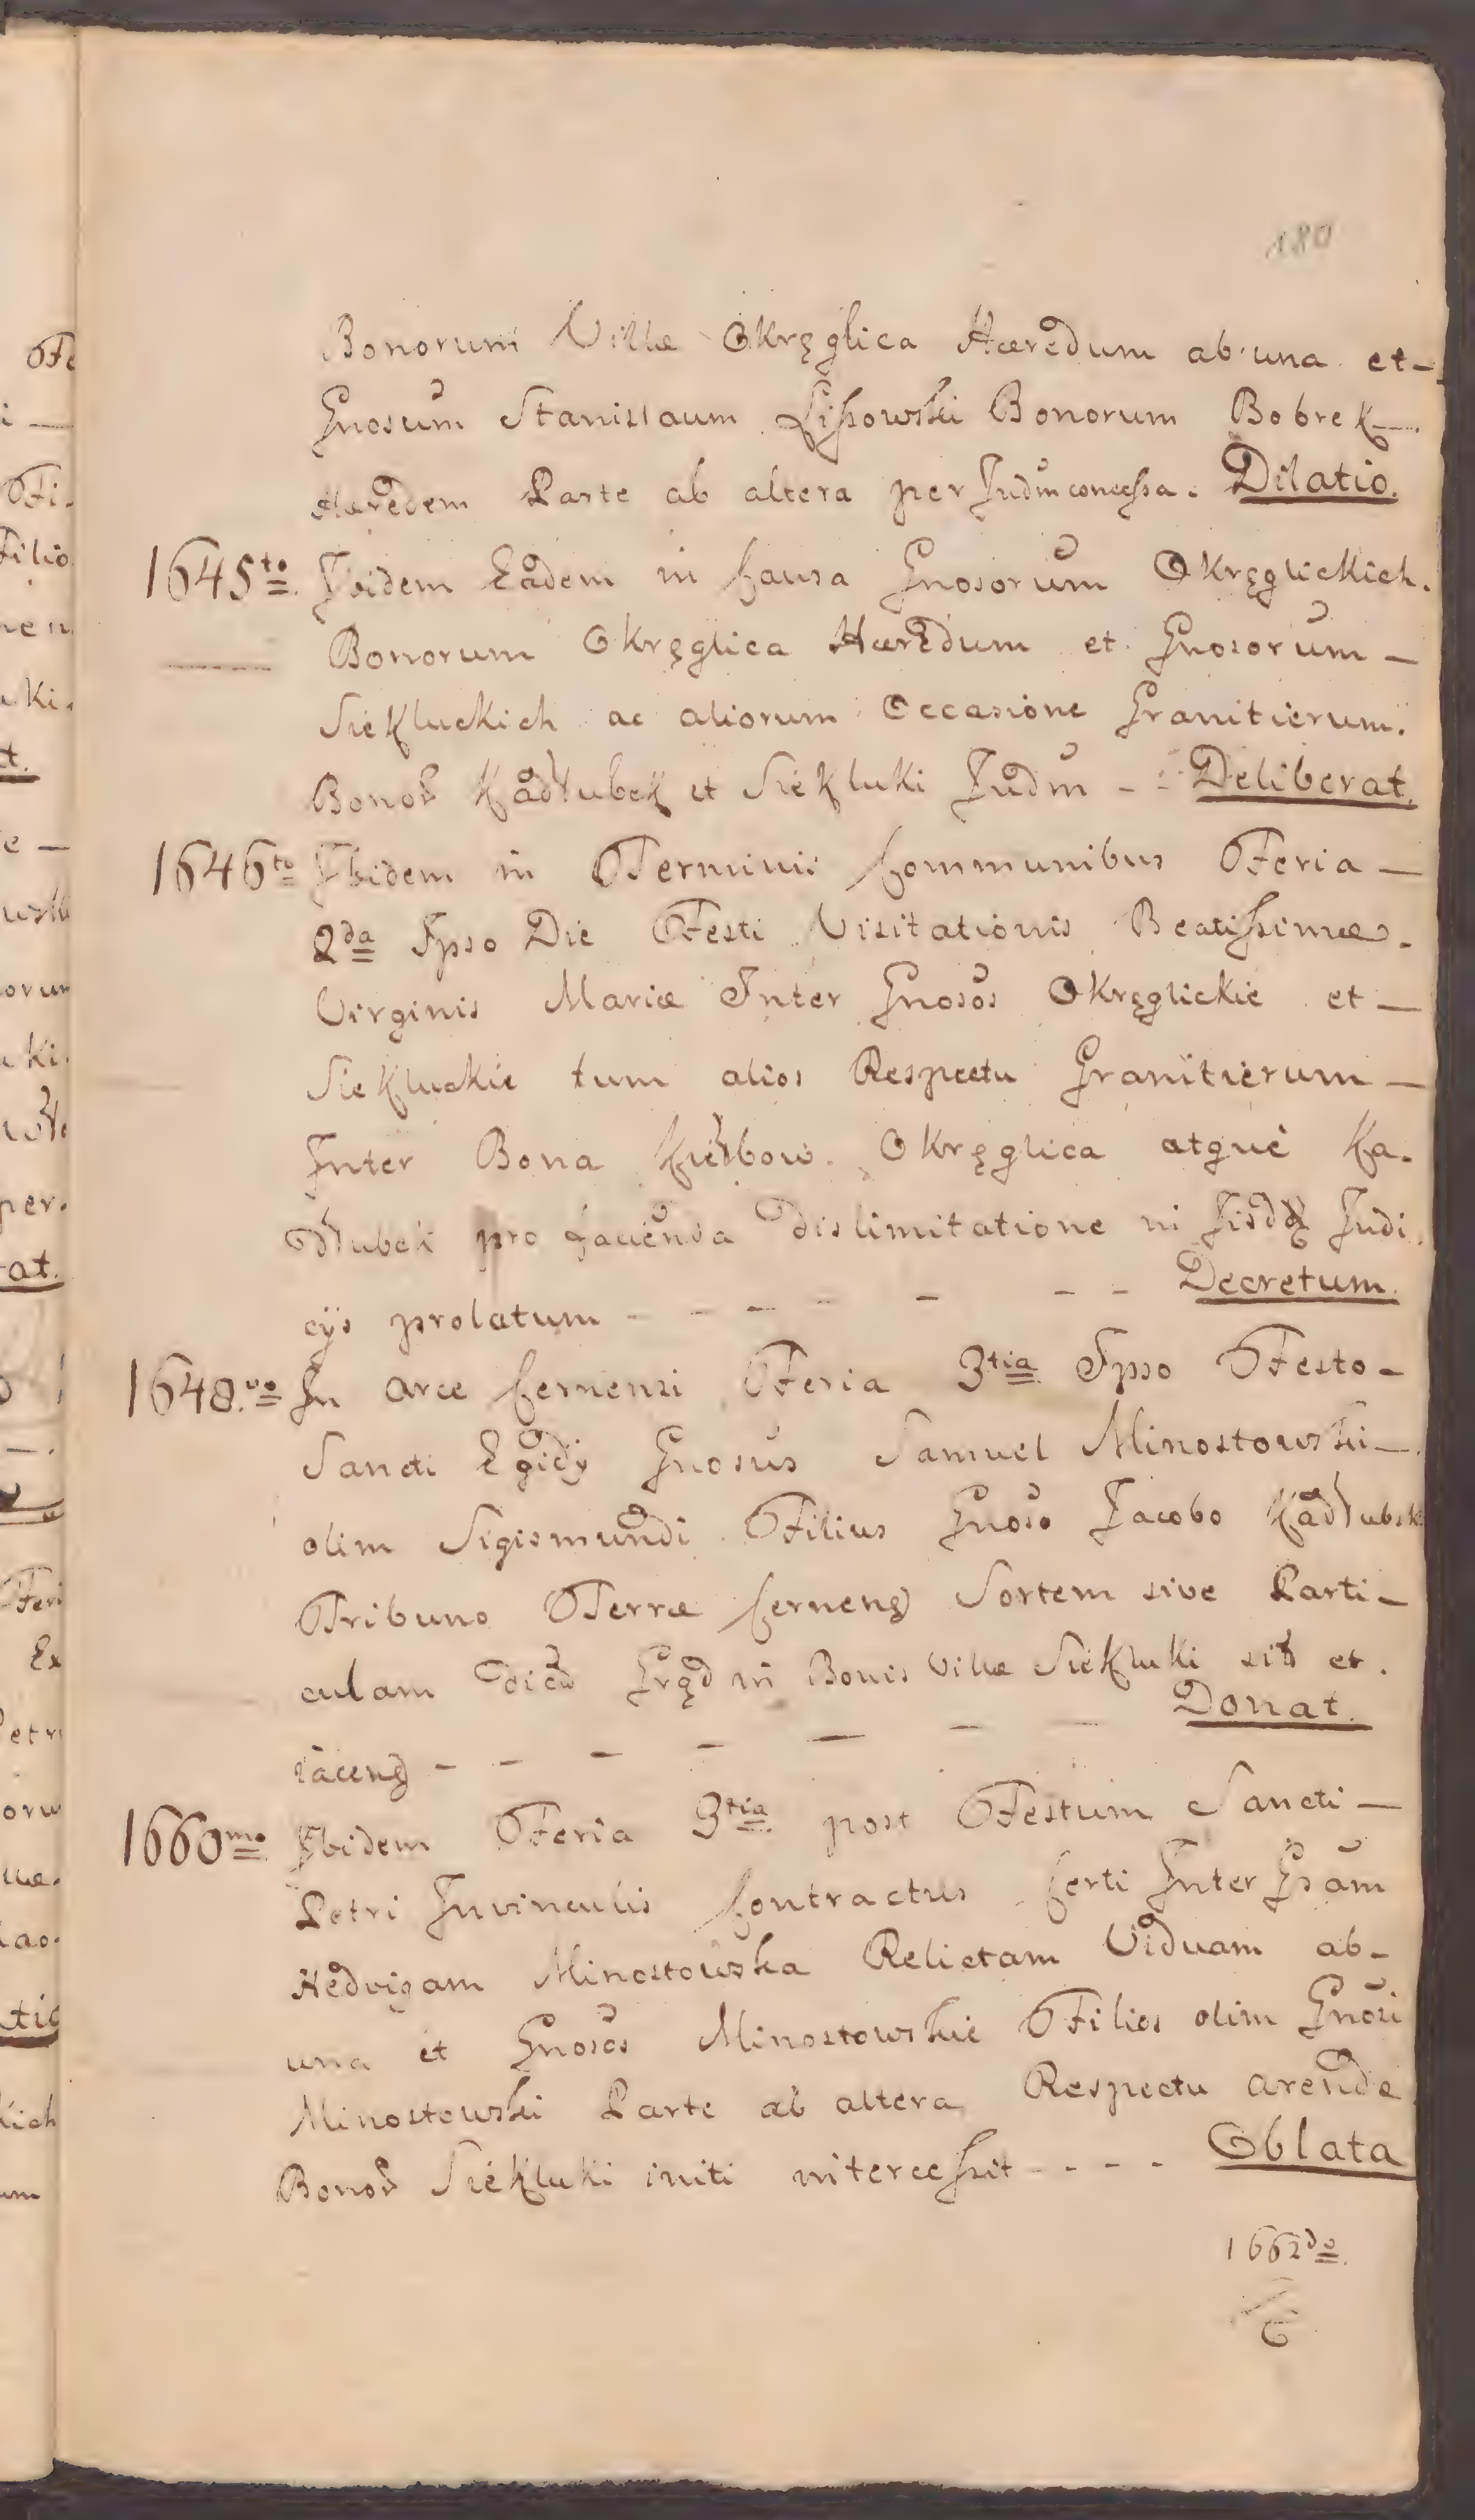 180
Bonorum Villæ Okręglica Hæredum ab una et
Gnosum Stanislaum Lissowski Bonorum Bobrek
Hæredem Parte ab altera per Judm concessa. Dilatio.
1645to Ibidem Eadem in Causa Gnosorum Okręglickich.
Bonorum Okręglica Hæredum et Gnosorum
Siekluckich ac aliorum Occasione Granitierum.
Bonor Kadłubek et Siekluki Judm - - Deliberat.
1646to Ibidem in Terminis Communibus Feria
2da Ipso Die Festi Visitationis Beatissimæ.
Virginis Mariæ Inter Gnosos Okręglickie et
Siekluckie tum alios Respectu Granitierum
Inter Bona Kiełbow Okręglica atque Ka.
dłubek pro facienda dislimitatione in Judi.
cijs prolatum - - - - - - - Decretum.
1648.vo In Arce Cernensi Feria 3tia Ipso Festo
Sancti Egidij Gnosus Samuel Minostowski
olim Sigismundi Filius Gnoso Jacobo Kadłubsk
Tribuno Terræ Cernens Sortem sive Parti-
culam in Bonis Villæ Siekluki sit et.
iacens - - - - - - - Donat.
1660mo Ibidem Feria 3tia post Festum Sancti
Petri Invinculis Contractus Certi Inter Gsam
Hedvigam Minostowska Relictam Viduam ab-
una et Gnosos Minostowskie Filios olim Gnosi
Minostowski Parte ab altera Respectu arendæ
Bonor Siekluki initi intercessit - - - - Oblata
1662do